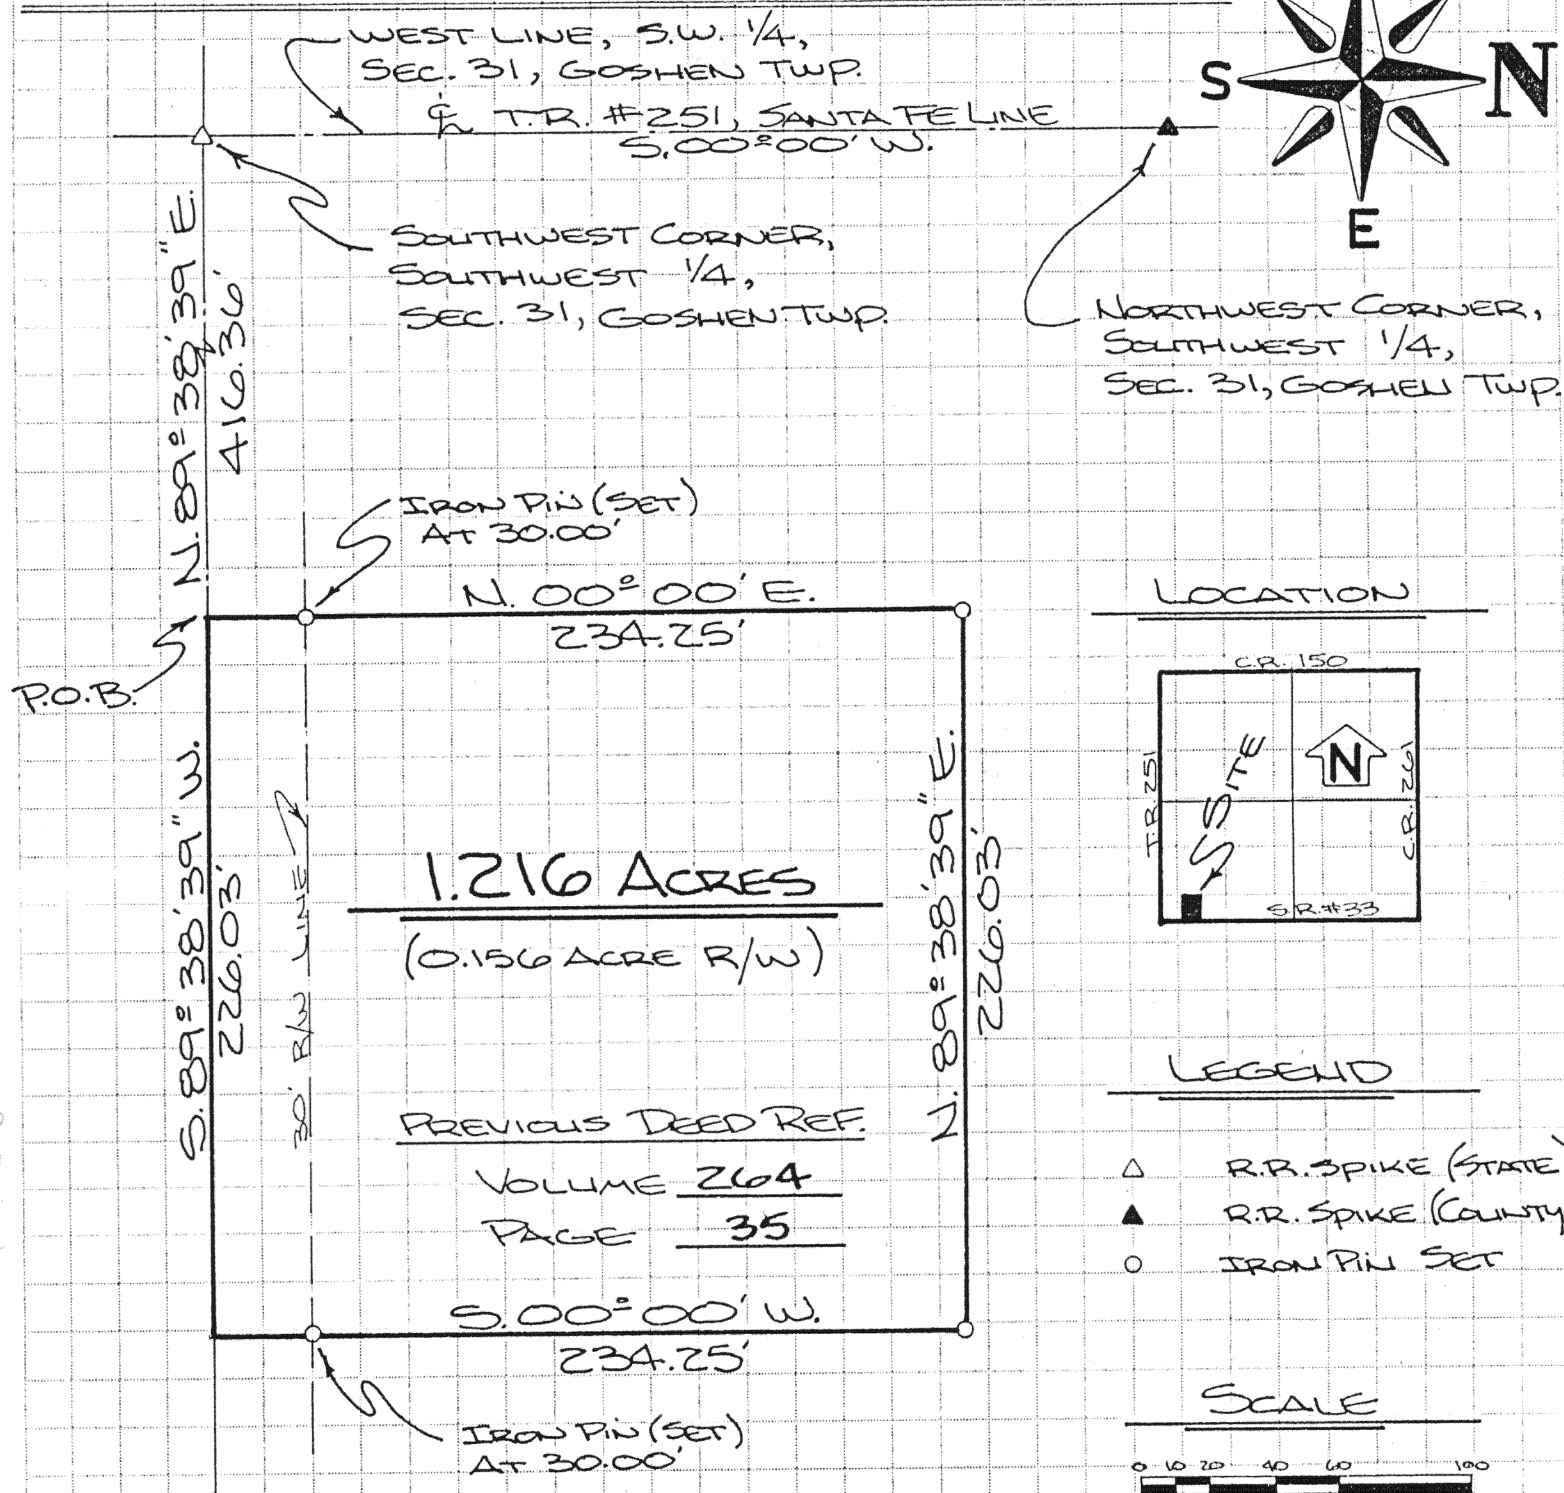 WEST LINE, S.W. 1/4,
SEC. 31, GOSHEN TWP.
℄ T.R. #251, SANTA FE LINE
S.00º00' W.
S
N
E
SOUTHWEST CORNER,
SOUTHWEST 1/4,
SEC. 31, GOSHEN TWP.
NORTHWEST CORNER,
SOUTHWEST 1/4,
SEC. 31, GOSHEN TWP.
N.89º38'39"E.
416.36'
IRON PIN (SET)
AT 30.00'
N. 00º00' E.
234.25'
P.O.B.
S.89º38'39"W.
226.03'
30' R/W LINE
1.216 ACRES
(0.156 ACRE R/W)
N.89º38'39"E.
226.03'
PREVIOUS DEED REF.
VOLUME 264
PAGE 35
S.00º00' W.
234.25'
IRON PIN (SET)
AT 30.00'
LOCATION
C.R. 150
T.R. 251
SITE
N
C.R. 261
S.R.#33
LEGEND
R.R. SPIKE (STATE)
R.R. SPIKE (COUNTY
IRON PIN SET
SCALE
0 10 20 40 60 100